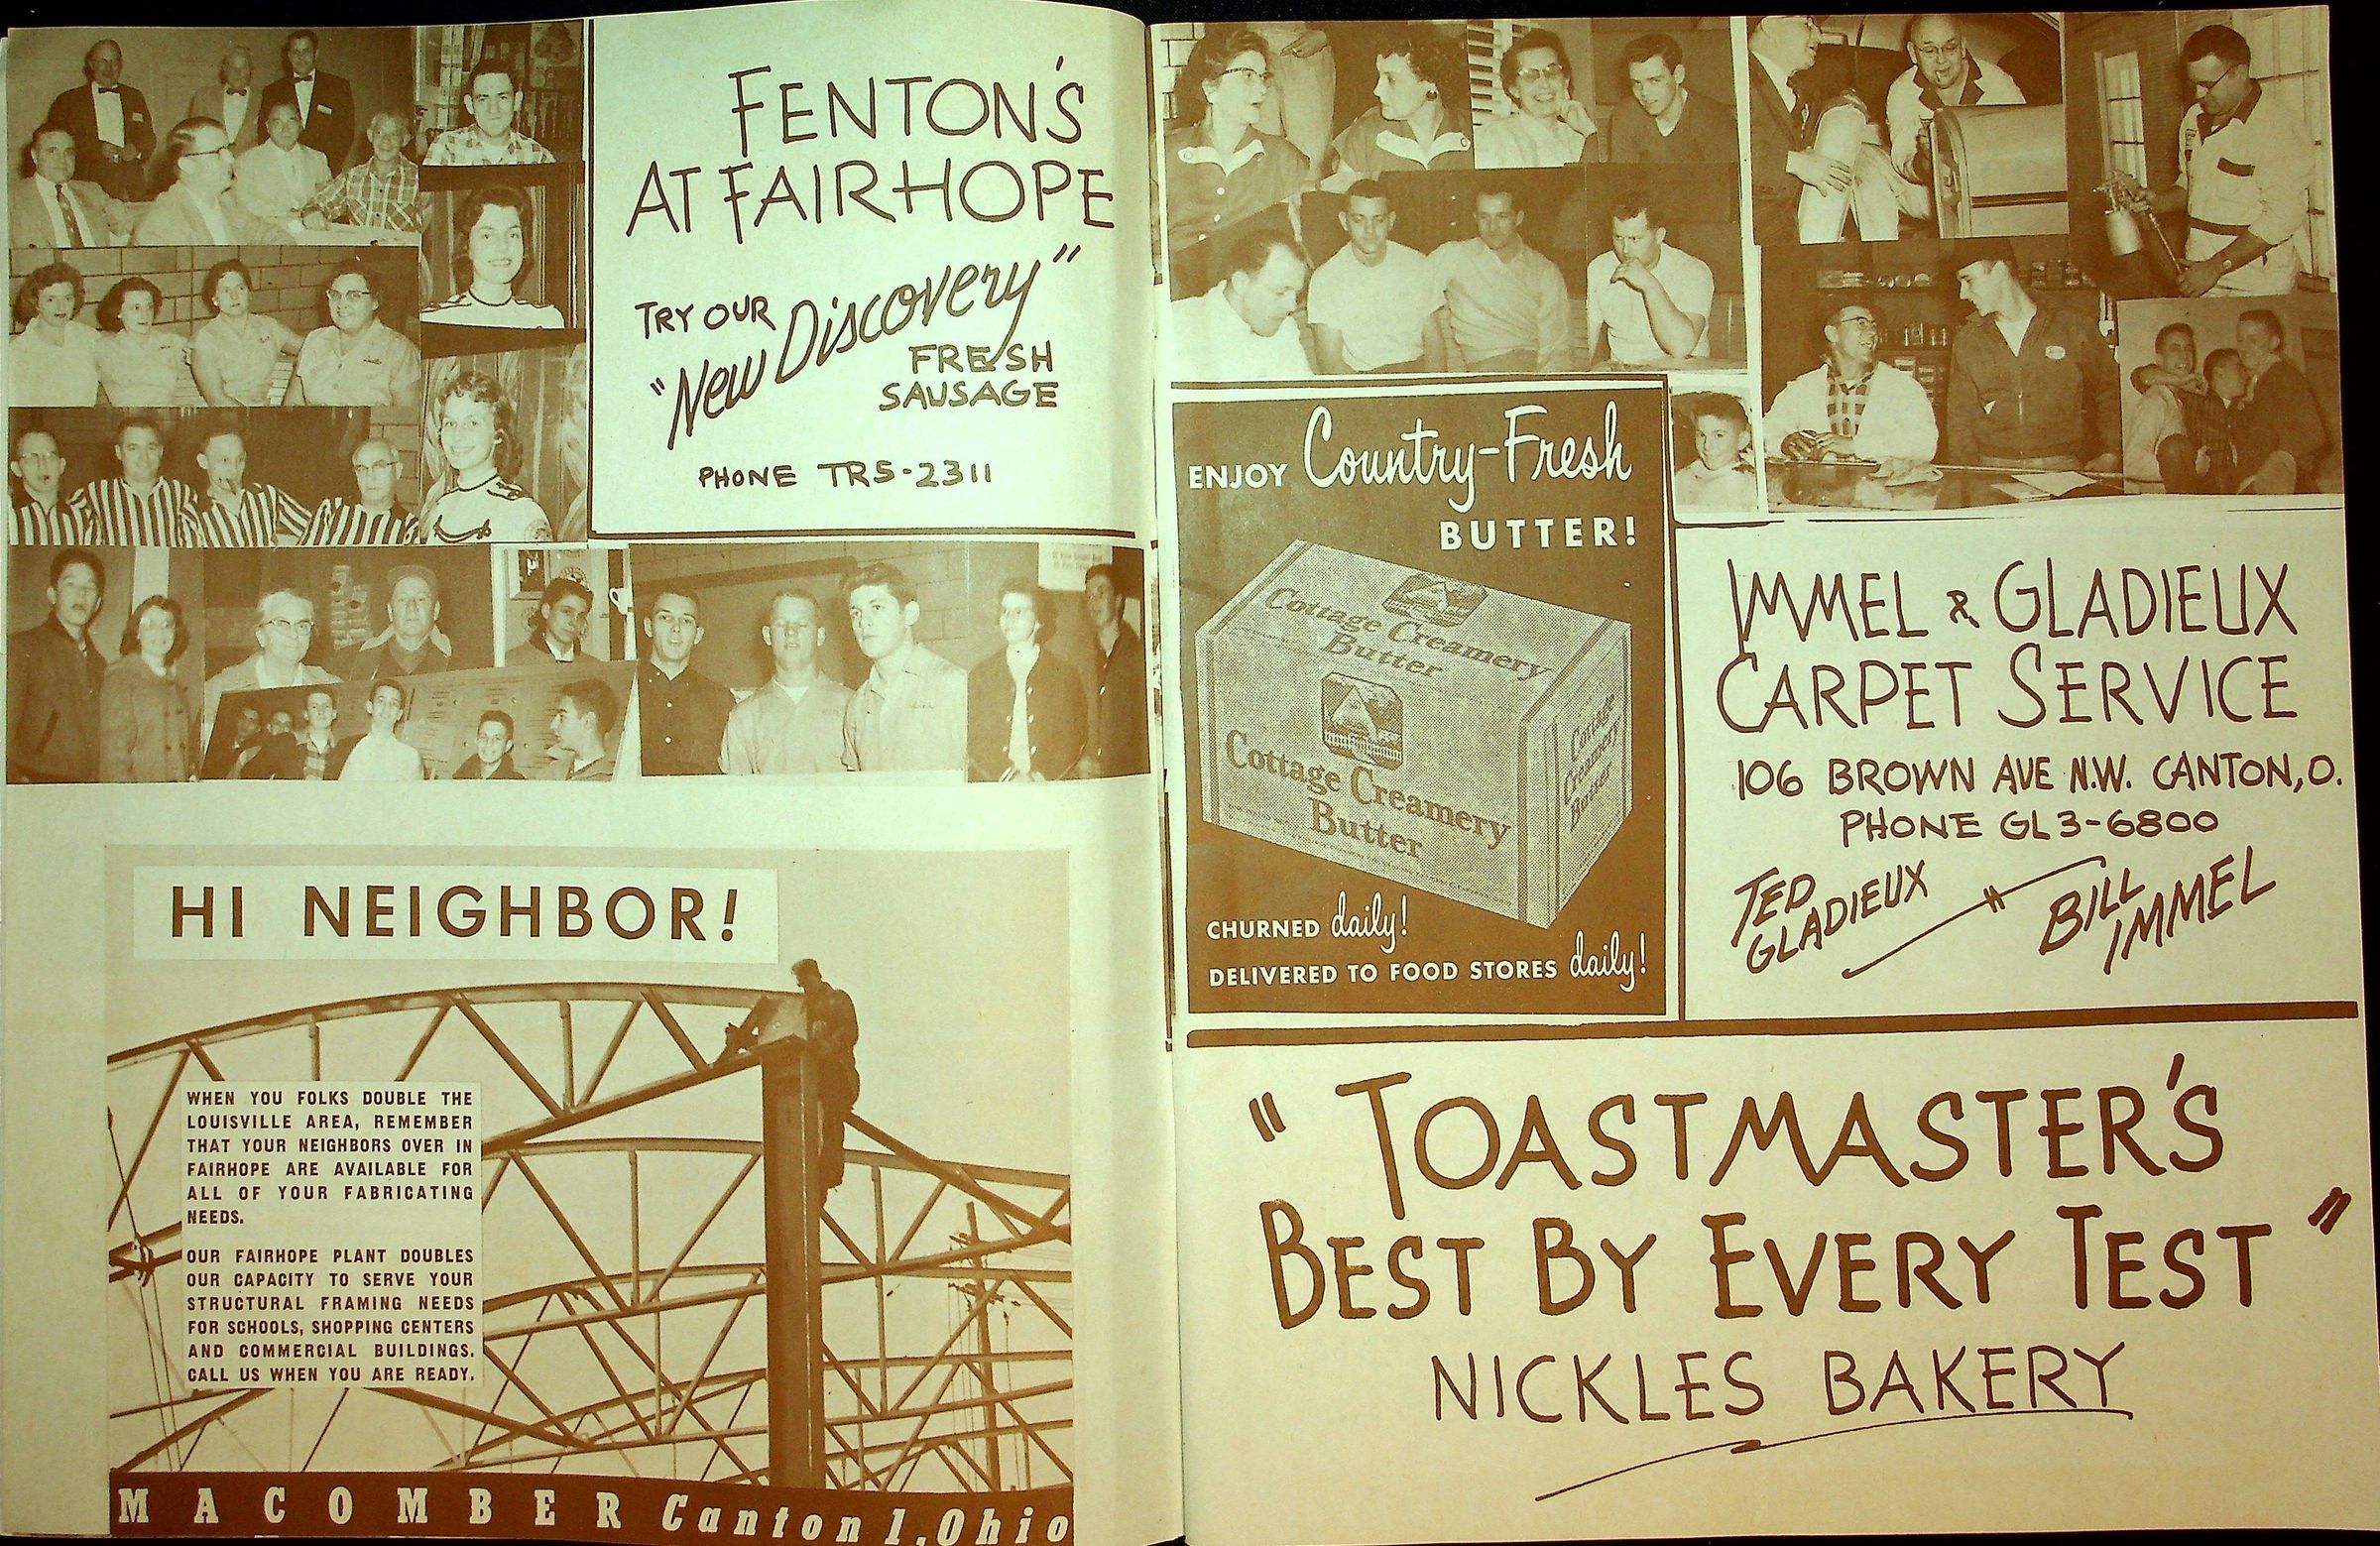 FENTON'S
AT FAIRHOPE
TRY OUR
"New Discovery"
FRESH
SAUSAGE
PHONE TR5-2311
HI NEIGHBOR!
WHEN YOU FOLKS DOUBLE THE
LOUISVILLE AREA, REMEMBER
THAT YOUR NEIGHBORS OVER IN
FAIRHOPE ARE AVAILABLE FOR
ALL OF YOUR FABRICATING
NEEDS.
OUR FAIRHOPE PLANT DOUBLES
OUR CAPACITY TO SERVE YOUR
STRUCTURAL FRAMING NEEDS
FOR SCHOOLS, SHOPPING CENTERS
AND COMMERCIAL BUILDINGS.
CALL US WHEN YOU ARE READY.
MACOMBER Canton 1, Ohio
ENJOY Country-Fresh
BUTTER!
Cottage Creamery
Butter
Cottage Creamery
Butter
Cottage
Creamery
Butter
CHURNED daily!
DELIVERED TO FOOD STORES daily!
IMMEL & GLADIEUX
CARPET SERVICE
106 BROWN AVE N.W. CANTON, O.
PHONE GL3-6800
TED
GLADIEUX
BILL
IMMEL
"TOASTMASTER'S
BEST BY EVERY TEST"
NICKLES BAKERY